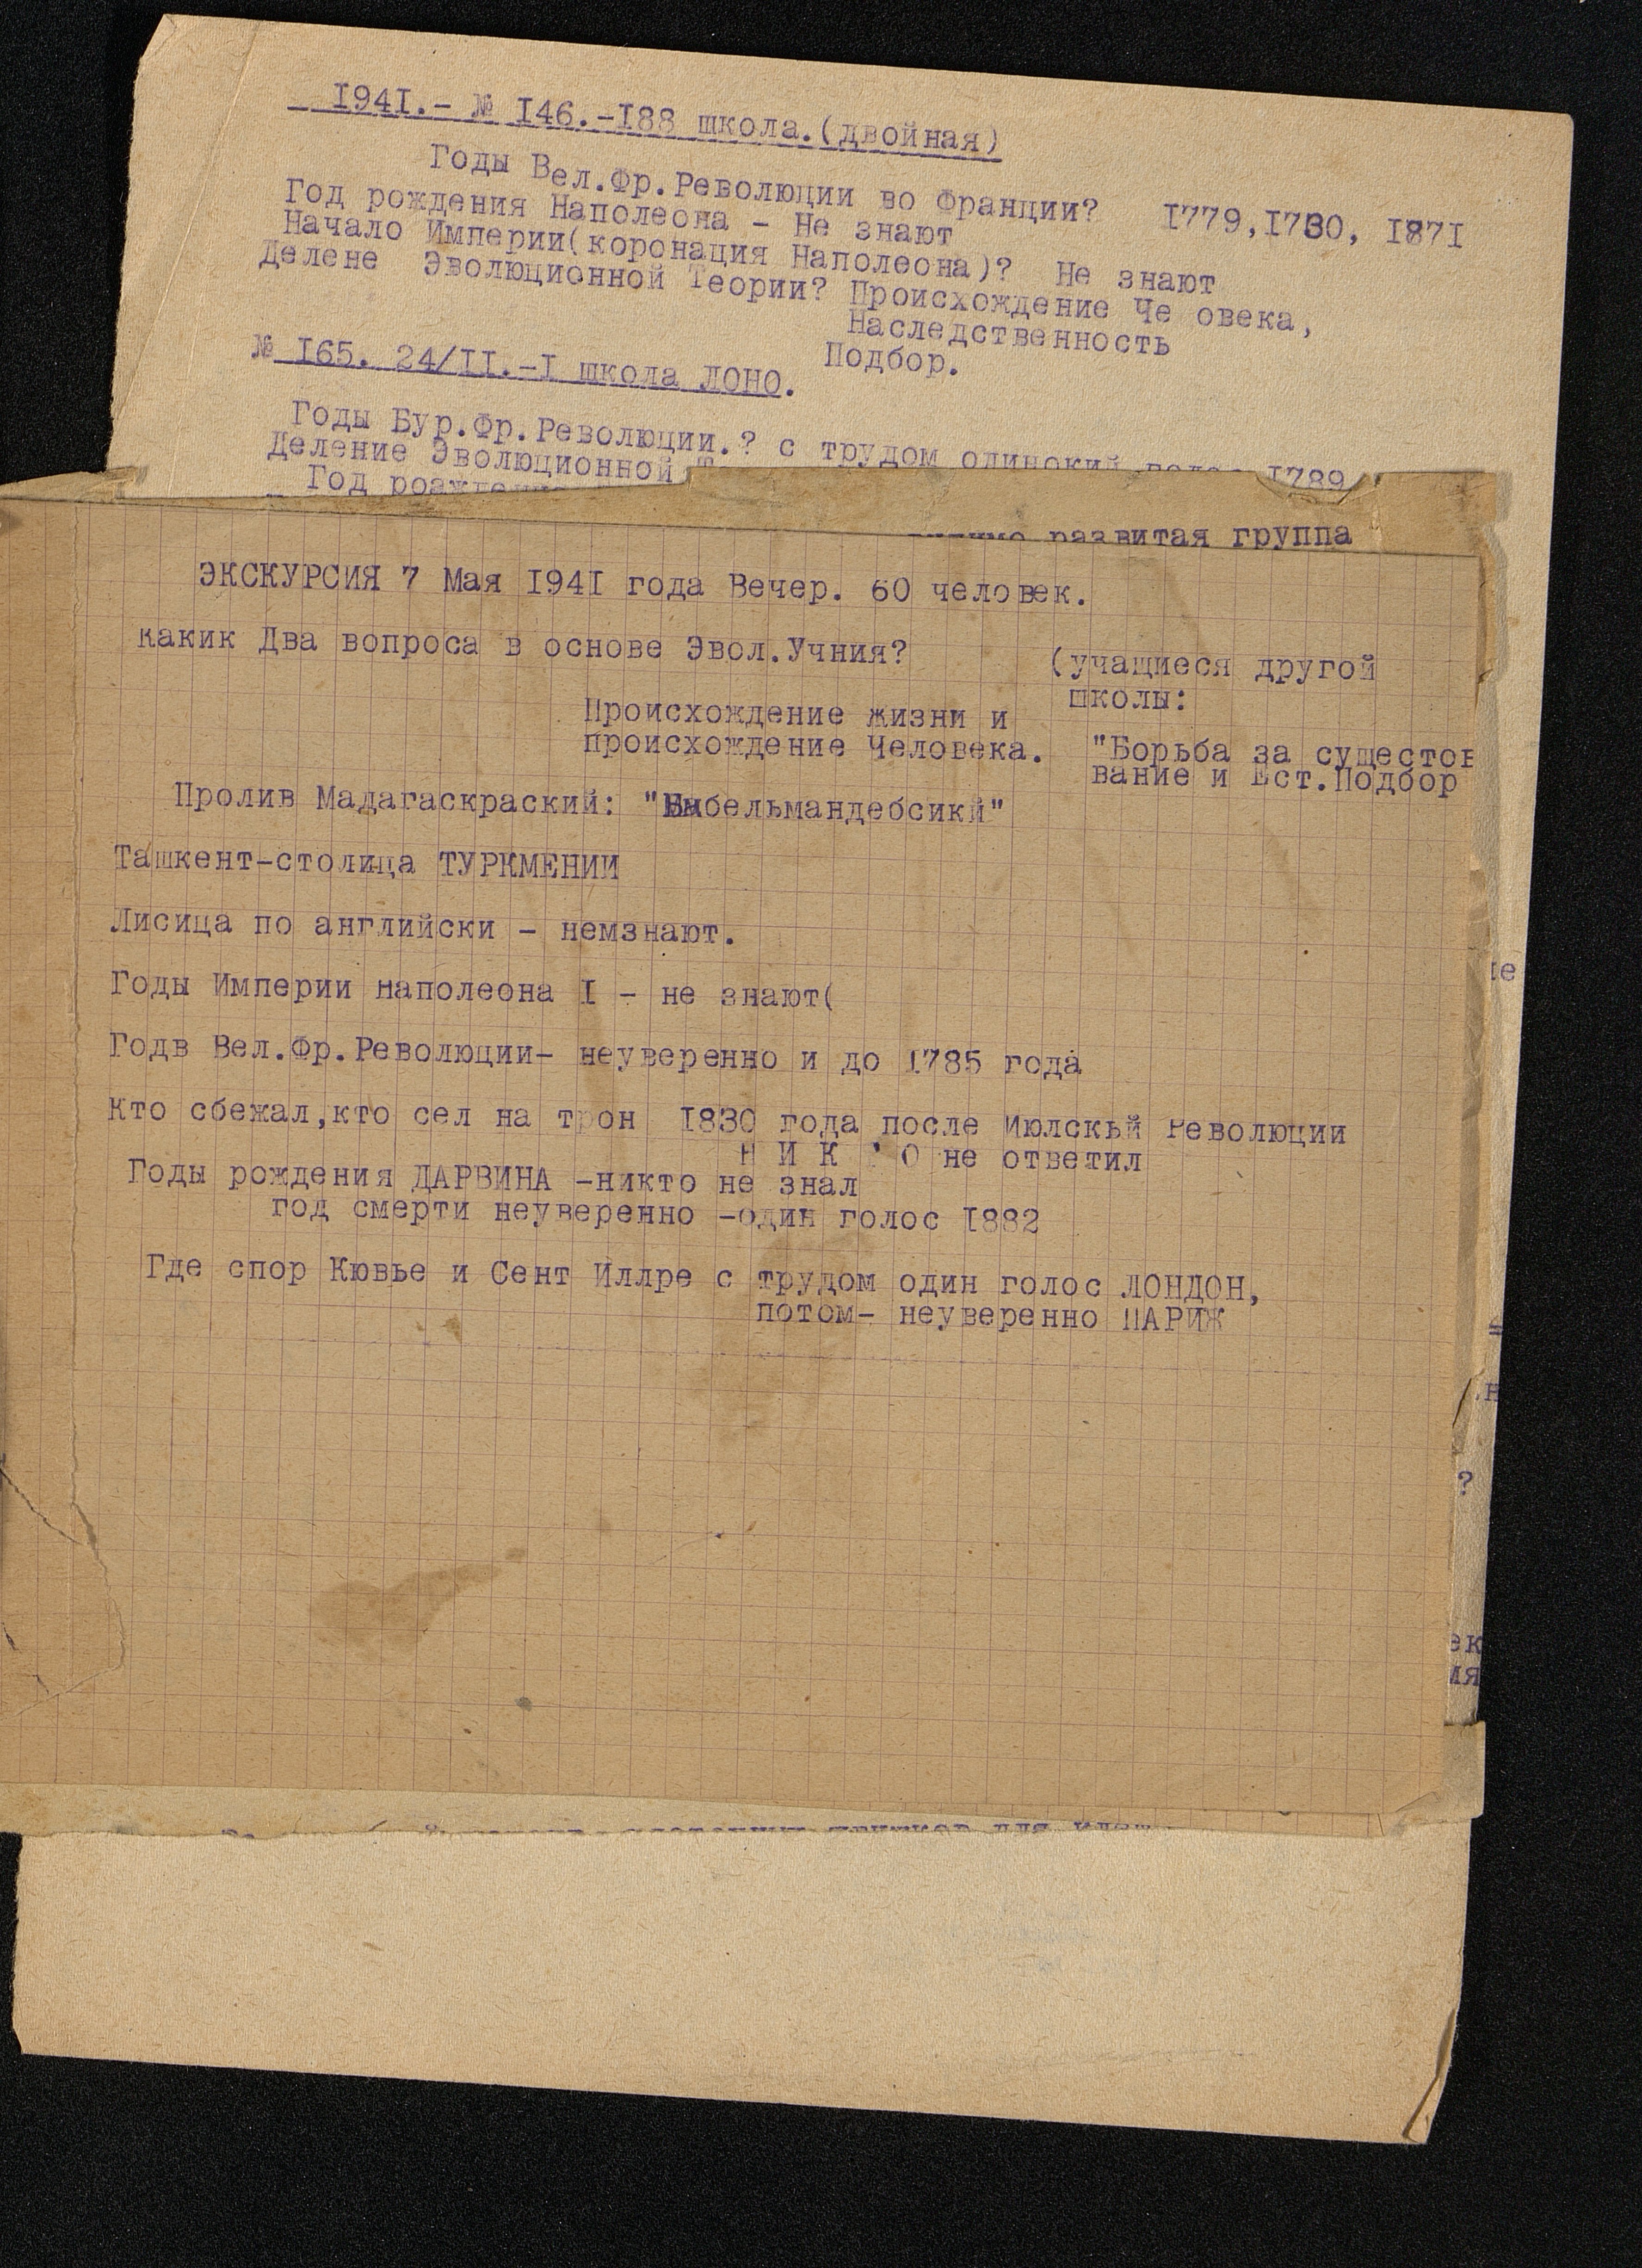 1941.- № 146.-188 школа.(двойная)
Годы Вел.Фр.Революции во Франции? 1779,1780, 1871
Год рождения Наполеона - Не знают
Начало Империи(коронация Наполеона)? Не знают
Делене Эволюционной Теории? Происхождение Че овека,
Наследственность
Подбор.
№ 165. 24/II.-I школа ЛОНО.
Годы Бур.Фр.Революции.? с трудом одинокий голос 1789
Деление Эволюционной
Год
развитая группа
ЭКСКУРСИЯ 7 Мая 1941 года Вечер. 60 человек.
какик Два вопроса в основе Эвол.Учния?
(учащиеся другой
школы:
Происхождение жизни и
происхождение Человека.
"Борьба за сущестов
вание и Ест.Подбор
Пролив Мадагаскраский: "Бабельмандебсикй"
Ташкент-столица ТУРКМЕНИИ
Лисица по английски - немзнают.
Годы Империи Наполеона I - не знают(
Годв Вел.Фр.Революции- неуверенно и до 1785 года
Кто сбежал,кто сел на трон 1830 года после Июлскьй Революции
Н И К Т О не ответил
Годы рождения ДАРВИНА -никто не знал
год смерти неуверенно -один голос 1882
Где спор Кювье и Сент Иллре с трудом один голос ЛОНДОН,
потом- неуверенно ПАРИЖ